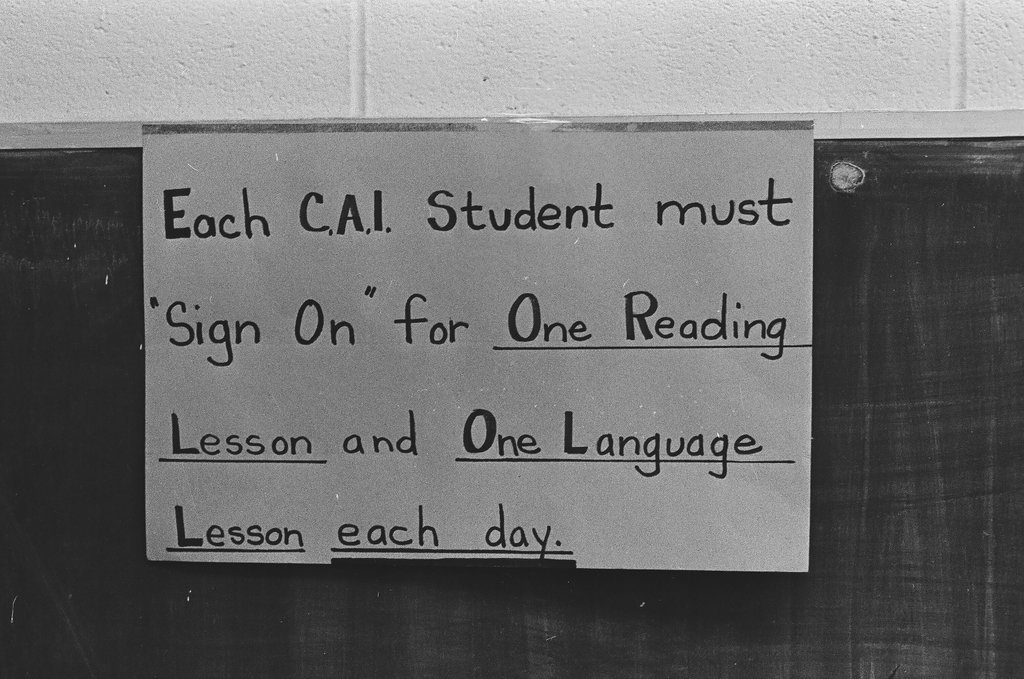 Each C.A.I. Student must
"Sign On" for One Reading
Lesson and One Language
Lesson each day.